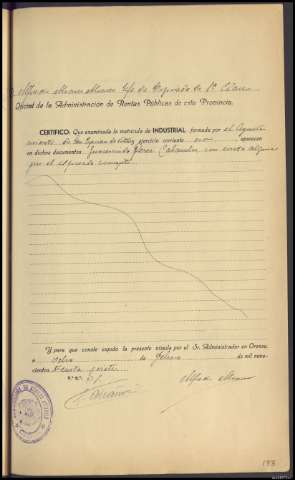 Alfredo Alvarez Alvarez Jefe de Negociado de 1ª Clase
Oficial de la Administración de Rentas Públicas de esta Provincia.
CERTIFICO: Que examinada la matrícula de INDUSTRIAL, formada por el Ayunta
miento de ejercicio corriente no aparece
en dichos documentos Pérez con cuota alguna
por el expresado concepto
Y para que conste expido la presente visada por el Sr. Administrador en Orense
a ocho de Febrero de mil nove-
cientos treinta y siete
V.º B.º
Alfredo Alvarez
198